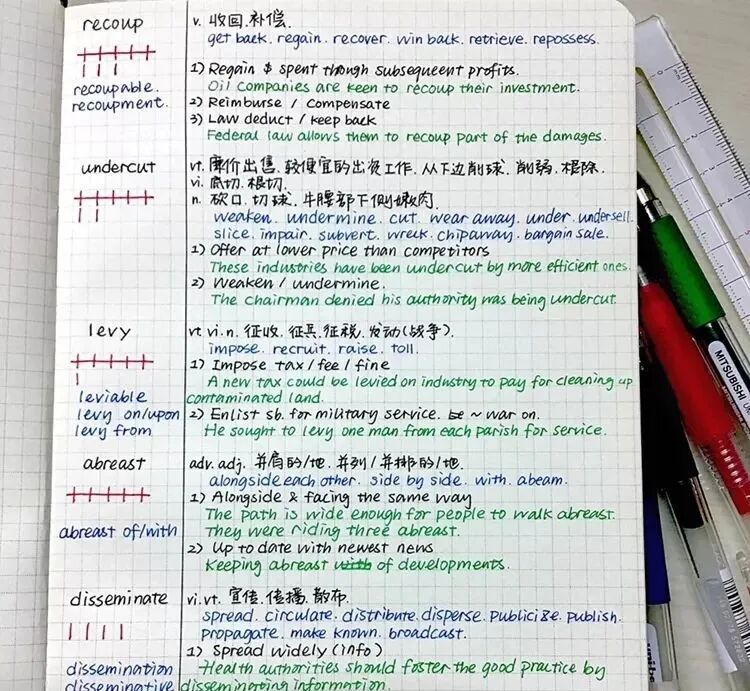 recoup
v. 收回.补偿.
get back. regain. recover. win back. retrieve. repossess.
recoupable.
recoupment.
1) Regain $ spent through subsequent profits.
Oil companies are keen to recoup their investment.
2) Reimburse / compensate
3) Law deduct / keep back
Federal law allows them to recoup part of the damages.
undercut
vt. 廉价出售. 较便宜的出资工作. 从下边削球. 削弱. 根除.
vi. 底切. 根切.
n. 砍口. 切球. 牛腰部下侧嫩肉.
weaken. undermine. cut. wear away. under. undersell.
slice. impair. subvert. wreck. chip away. bargain sale.
1) Offer at lower price than competitors
These industries have been undercut by more efficient ones.
2) Weaken / undermine.
The chairman denied his authority was being undercut.
levy
vt. vi. n. 征收. 征兵. 征税. 发动(战争).
impose. recruit. raise. toll.
leviable
levy on/upon
levy from
1) Impose tax / fee / fine
A new tax could be levied on industry to pay for cleaning up
contaminated land.
2) Enlist sb. for military service. ~ war on.
He sought to levy one man from each parish for service.
abreast
adv. adj. 并肩的/地. 并列/并排的/地.
alongside each other. side by side. with. abeam.
abreast of/with
1) Alongside & facing the same way
The path is wide enough for people to walk abreast.
They were riding three abreast.
2) Up to date with newest news
Keeping abreast of developments.
disseminate
vi. vt. 宣传. 传播. 散布.
spread. circulate. distribute. disperse. publicize. publish.
propagate. make known. broadcast.
dissemination
disseminative
1) Spread widely (info)
Health authorities should foster the good practice by
disseminating information.
MITSUBISHI